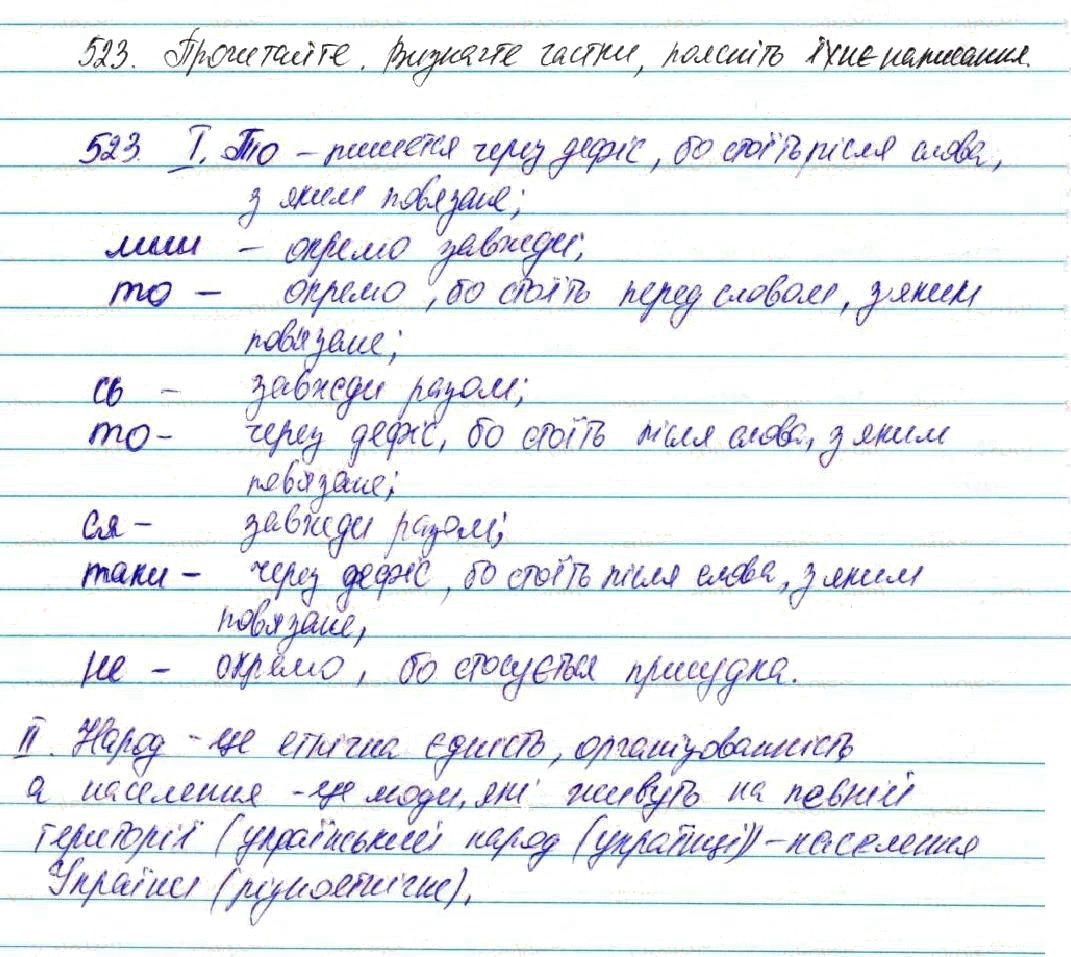 523. Прочитайте. Визначте частки, поясніть їхнє написання.
523. І. То – пишеться через дефіс, бо стоїть після слова,
з яким пов'язане;
лиш – окремо завжди;
то – окремо, бо стоїть перед словом, з яким
пов'язане;
сь – завжди разом;
то – через дефіс, бо стоїть після слова, з яким
пов'язане;
ся – завжди разом;
таки – через дефіс, бо стоїть після слова, з яким
пов'язане,
не – окремо, бо стосується присудка.
ІІ. Народ – це етнічна єдність, організованність,
а населення – це люди, які живуть на певній
території (український народ (українці)) – населення
України (різноетнічне).